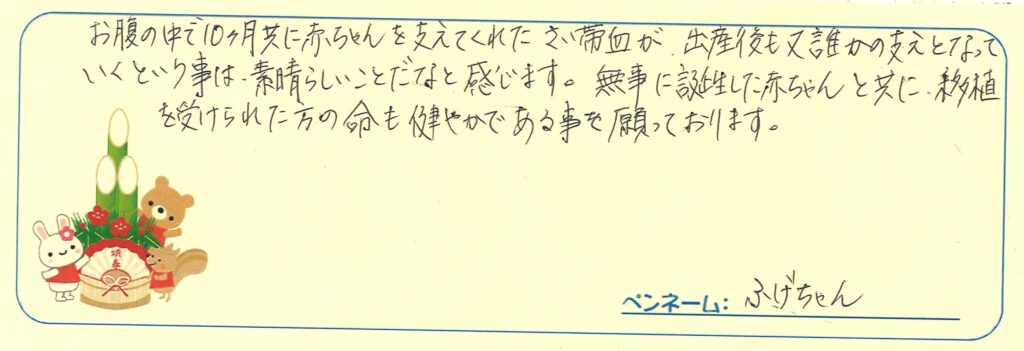 お腹の中で10ヶ月共に赤ちゃんを支えてくれたさい帯血が、出産後も又誰かの支えとなって
いくという事は、素晴らしいことだなと感じます。無事に誕生した赤ちゃんと共に、移植
を受けられた方の命も健やかである事を願っております。
頌春
ペンネーム: ふげちゃん